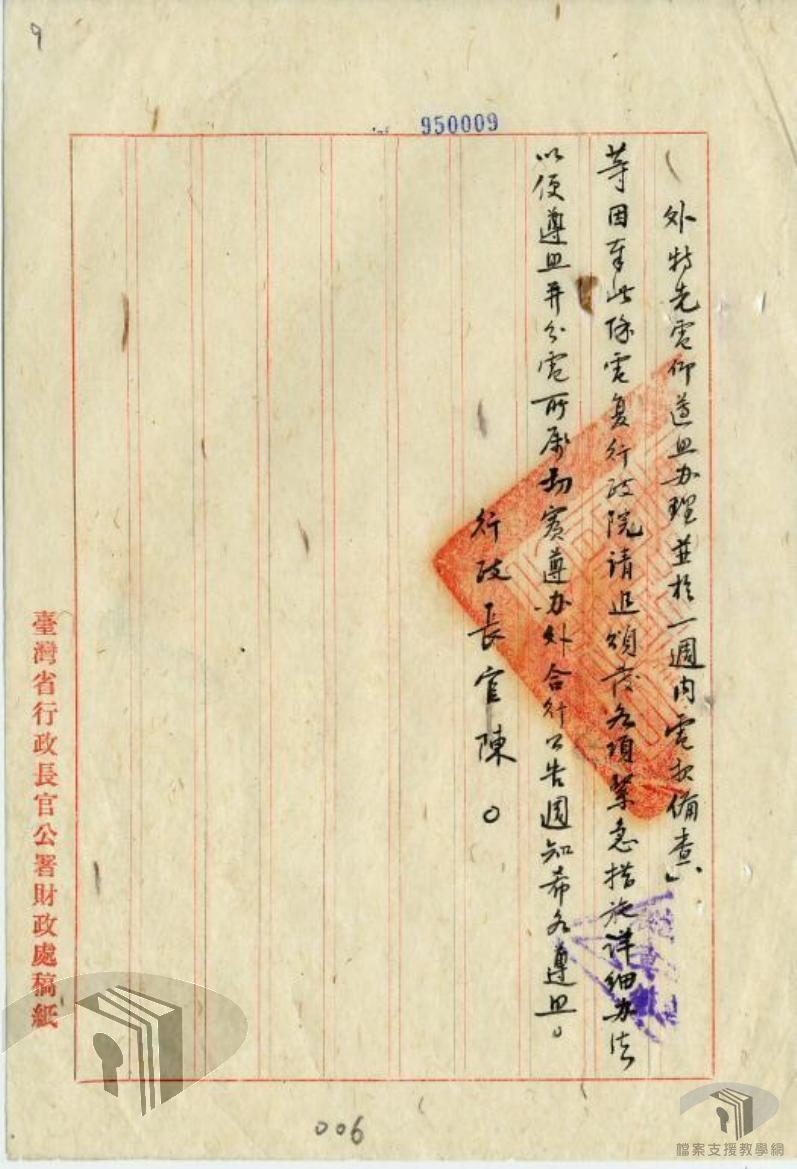 9
950009
外特先電仰遵照办理並於一週内電报備查」
等因奉此除電复行政院請迅頒發各項緊急措施詳細办法
以便遵照并分電所属切實遵办外合行公告週知希各遵照。
行政長官陳○
臺灣省行政長官公署財政處稿紙
006
檔案支援教學網